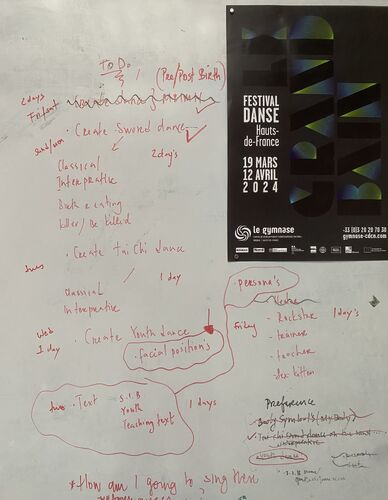 To Do
(Pre/Post Birth)
2 days
Fri/sat
Create Sword dance
sun/mon
Classical
2 day's
Interpretive
Kiler / Be Killed
Create Tai Chi dance
tues
1 day
Classical
Interpretive
Create Youth dance
1 day
facial position's
Text
S.I.B
Youth
Teaching text
1 days
persona's
Friday
Rockstar
1 day's
trainer
teacher
Sex kitten
Preference
Body Symbol's (My Body)
Youth dance
S.I.B
*How am I going to sing then
LE GRAND BAIN
FESTIVAL
DANSE
Hauts-
de-France
19 MARS
12 AVRIL
2024
le gymnase
+33 (0)3 20 20 70 30
gymnase-cdcn.com